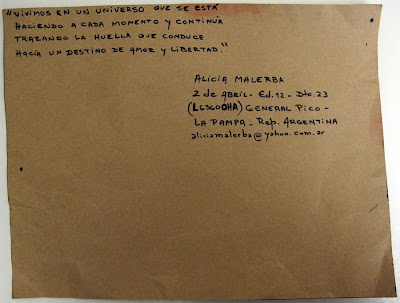 "VIVIMOS EN UN UNIVERSO QUE SE ESTÁ
HACIENDO A CADA MOMENTO Y CONTINÚA
TRAZANDO LA HUELLA QUE CONDUCE
HACIA UN DESTINO DE AMOR Y LIBERTAD."
ALICIA MALERBA
2 de ABRIL - Ed. 12 - Dto. 23
(L6360OHA) GENERAL PICO -
LA PAMPA - Rep. ARGENTINA
aliciamalerba@yahoo.com.ar